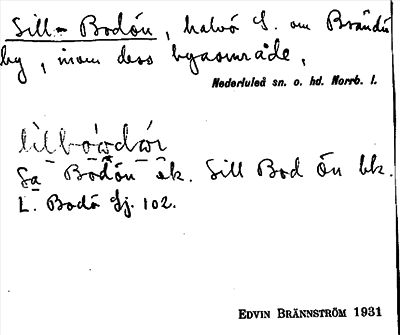 Sill-Bodön, halvö S. om Brändö
by, inom dess byaområde.
Nederluleå sn. o. hd. Norrb. l.
Sa Bodön ek. Sill Bod Ön bk.
L. Bodö Sj. 102.
EDVIN BRÄNNSTRÖM 1931